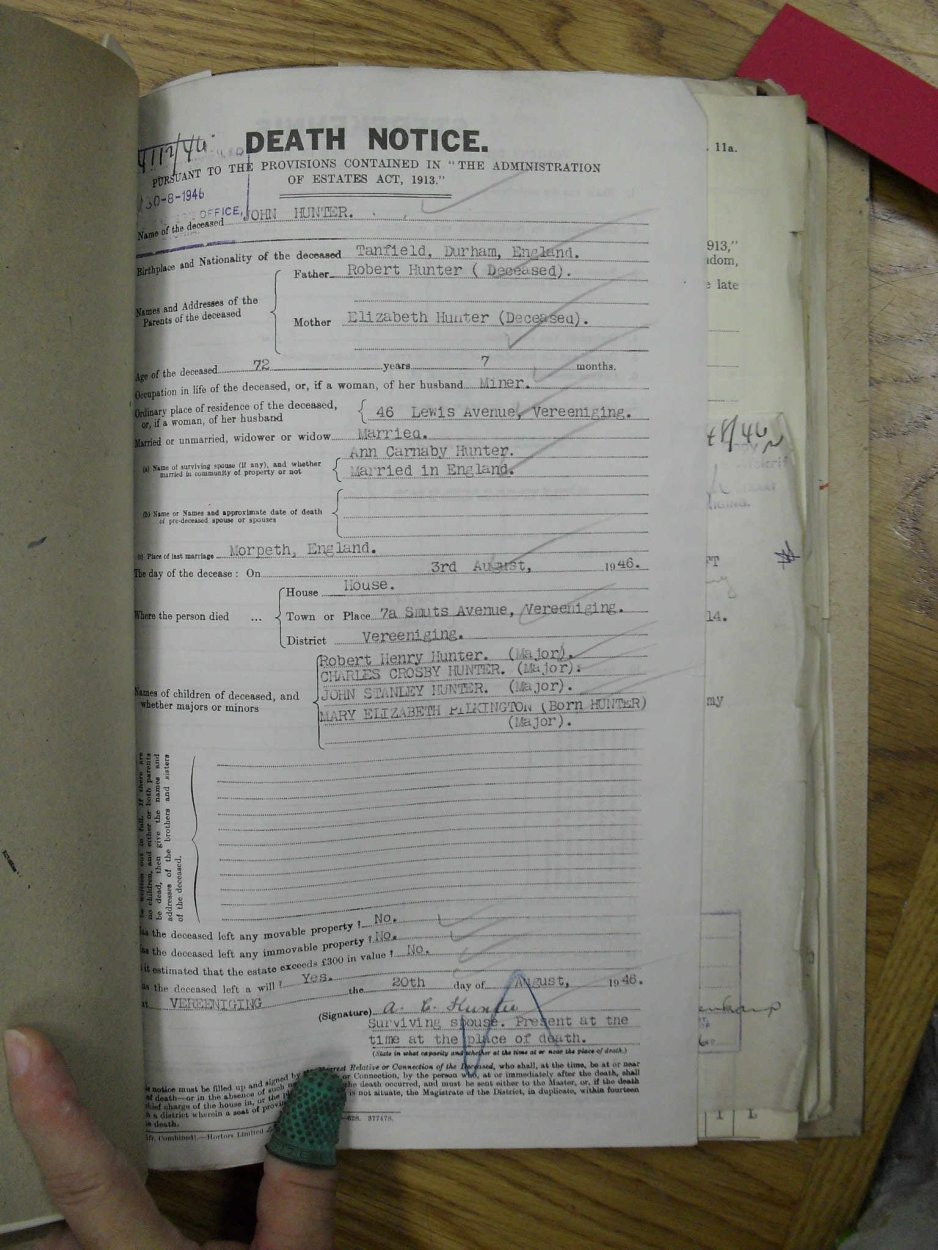 4112/46
DEATH NOTICE.
PURSUANT TO THE PROVISIONS CONTAINED IN "THE ADMINISTRATION
OF ESTATES ACT, 1913."
30-8-1946
OFFICE,
Name of the deceased JOHN HUNTER.
Birthplace and Nationality of the deceased Tanfield, Durham, England.
Names and Addresses of the Parents of the deceased
Father Robert Hunter ( Deceased).
Mother Elizabeth Hunter (Deceased).
Age of the deceased 72 years 7 months.
Occupation in life of the deceased, or, if a woman, of her husband Miner.
Ordinary place of residence of the deceased, or, if a woman, of her husband 46 Lewis Avenue, Vereeniging.
Married or unmarried, widower or widow Married.
(a) Name of surviving spouse (if any), and whether married in community of property or not
Ann Carnaby Hunter.
Married in England.
(b) Name or Names and approximate date of death of pre-deceased spouse or spouses
(c) Place of last marriage Morpeth, England.
The day of the decease : On 3rd August, 1946.
Where the person died ...
House House.
Town or Place 7a Smuts Avenue, Vereeniging.
District Vereeniging.
Names of children of deceased, and whether majors or minors
Robert Henry Hunter. (Major).
CHARLES CROSBY HUNTER. (Major).
JOHN STANLEY HUNTER. (Major).
MARY ELIZABETH PILKINGTON (Born HUNTER)
(Major).
written out in full. If there are
no children, and either or both parents
be dead, then give the names and
addresses of the brothers and sisters
of the deceased.
has the deceased left any movable property ? No.
has the deceased left any immovable property ? No.
it estimated that the estate exceeds £300 in value ? No.
has the deceased left a will ? Yes.
at VEREENIGING the 20th day of August, 1946.
(Signature) A. C. Hunter
Surviving spouse. Present at the
time at the place of death.
(State in what capacity and whether at the time at or near the place of death.)
notice must be filled up and signed by
Nearest Relative or Connection of the Deceased, who shall, at the time, be at or near
of death—or in the absence of such
or Connection, by the person who, at or immediately after the death, shall
chief charge of the house in, or the
the death occurred, and must be sent either to the Master, or, if the death
a district wherein a seat of
is not situate, the Magistrate of the District, in duplicate, within fourteen
death.
Combined).—Hortors Limited
377478.
11a.
913,"
late
48/46
14.
my
I L